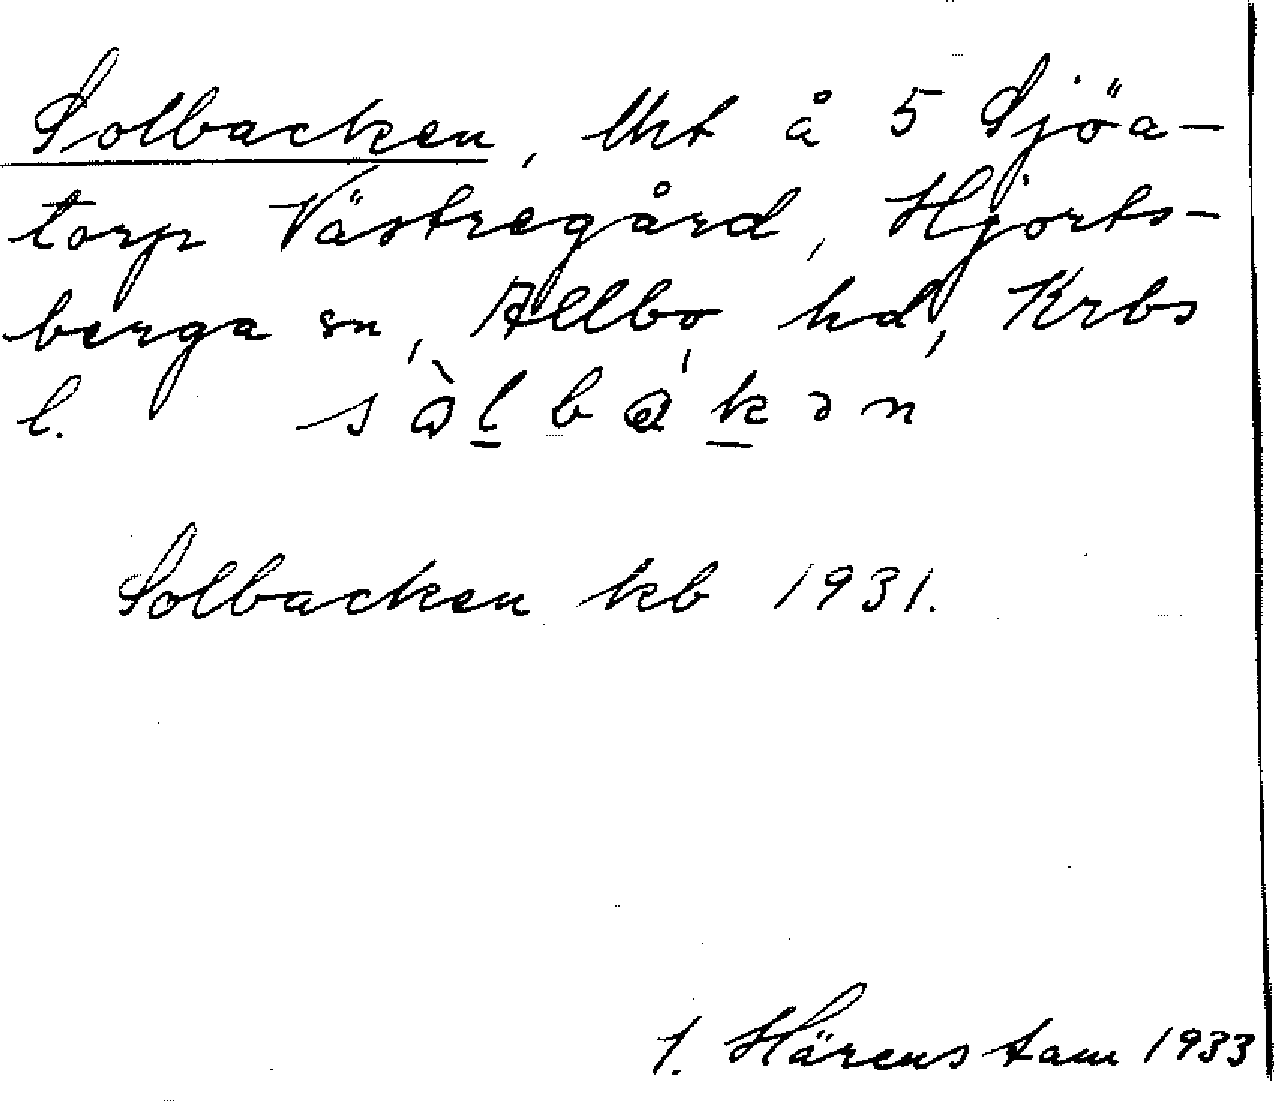 Solbacken, lht å 5 Sjöa-
torp Västregård, Hjorts-
berga sn, Allbo hd, Krbs
l. sàlbákən
Solbacken kb 1931.
J. Härenstam 1933